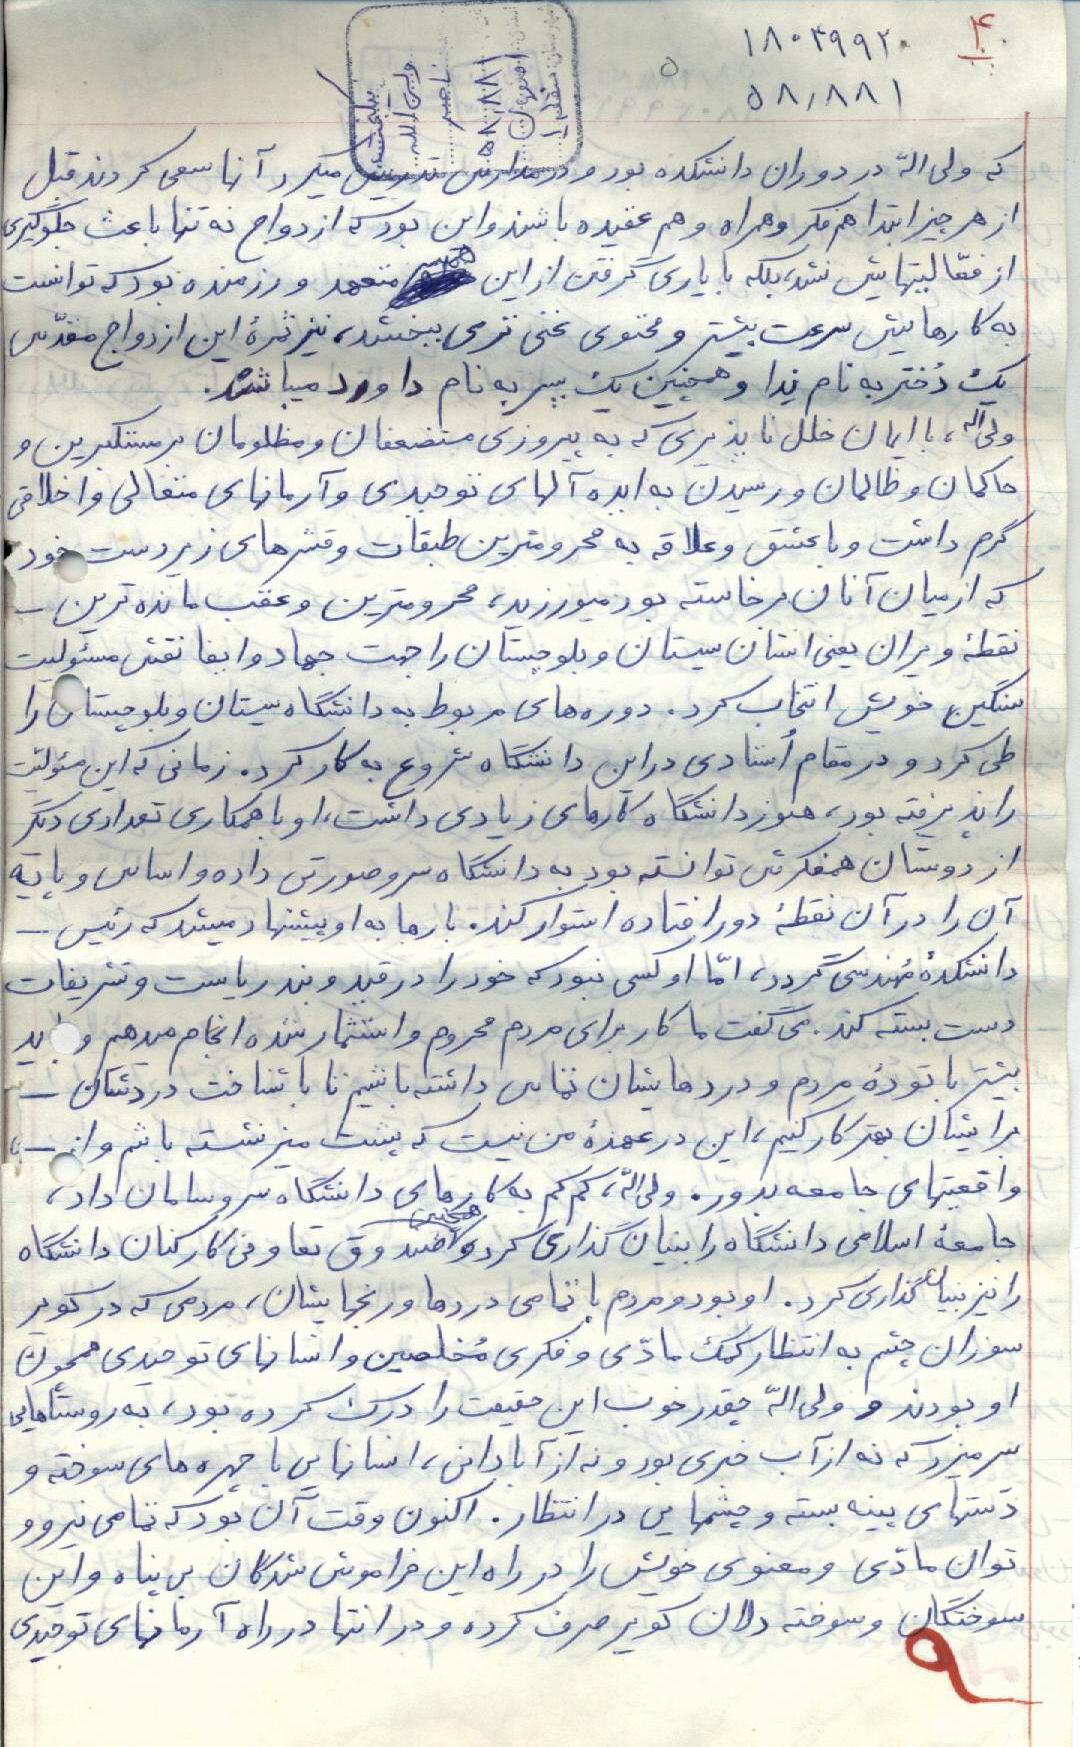 ۴
۱۸۰۳۹۹۲۰
۵۸,۸۸۱
۵۸,۸۸۱
که ولی الله در دوران دانشکده بود و در مدارس تدریس میکرد آنها سعی کردند قبل
از هر چیز ابتدا هم فکر و همراه و هم عقیده باشند و این بود که ازدواج نه تنها باعث جلوگیری
از فعّالیتهایش نشد، بلکه با یاری گرفتن از این همسر متعهد و رزمنده بود که توانست
به کارهایش سرعت بیشتر و محتوی غنی تری ببخشد، نیز ثمرهٔ این ازدواج مقدّس
یک دُختر به نام ندا و همچنین یک پسر به نام داورد میباشد.
ولی اله، با ایمان خلل ناپذیری که به پیروزی مستضعفان و مظلومان بر مستکبرین و
حاکمان و ظالمان و رسیدن به ایده آلهای توحیدی و آرمانهای متعالی و اخلاقی
گرم داشت و با عشق و علاقه به محرومترین طبقات و قشرهای زیردست خود
که از میان آنان برخاسته بود میورزید، محرومترین و عقب مانده ترین ـ
نقطهٔ ویران یعنی استان سیستان و بلوچستان را جهت جهاد و ایفا نقش مسئولیت
سنگین خویش انتخاب کرد. دوره های مربوط به دانشگاه سیستان و بلوچستان را
طی کرد و در مقام اُستادی در این دانشگاه شروع به کار کرد. زمانی که این مسئولیّت
را پذیرفته بود، هنوز دانشگاه کارهای زیادی داشت، او با همکاری تعدادی دیگر
از دوستان همفکرش توانسته بود به دانشگاه سر و صورتی داده و اساس و پایه
آن را در آن نقطهٔ دور افتاده استوار کند. بارها به او پیشنهاد میشد که رئیس ـ
دانشکدهٔ مُهندسی گردد، امّا او کسی نبود که خود را در قید و بند ریاست و تشریفات
دست بسته کند. می گفت ما کار برای مردم محروم و استثمار شده انجام میدهیم و باید
بیشتر با تودهٔ مردم و دردهایشان تماس داشته باشیم تا با شناخت دردشان ـ
برایشان بهتر کار کنیم، این در عهدهٔ من نیست که پشت میز نشسته باشم و از ـ
واقعیتهای جامعه بدور. ولی الله، کم کم به کارهای دانشگاه سر و سامان داد،
جامعهٔ اسلامی دانشگاه را بنیان گذاری کرد و همچنین صندوق تعاونی کارکنان دانشگاه
را نیز بنیان گذاری کرد. او بود و مردم با تمامی دردها و رنجهایشان، مردمی که در کویر
سوزان چشم به انتظار کمک مادّی و فکری مُخلصین و انسانهای توحیدی همچون
او بودند و ولی الله چقدر خوب این حقیقت را درک کرده بود، به روستاهایی
سر میزد که نه از آب خبری بود و نه از آبادانی، انسانهایی با چهره های سوخته و
دستهای پینه بسته و چشمهایی در انتظار. اکنون وقت آن بود که تمامی نیرو و
توان مادّی و معنوی خویش را در راه این فراموش شدگان بی پناه و این
سوختگان و سوخته دلان کویر صرف کرده و در انتها در راه آرمانهای توحیدی